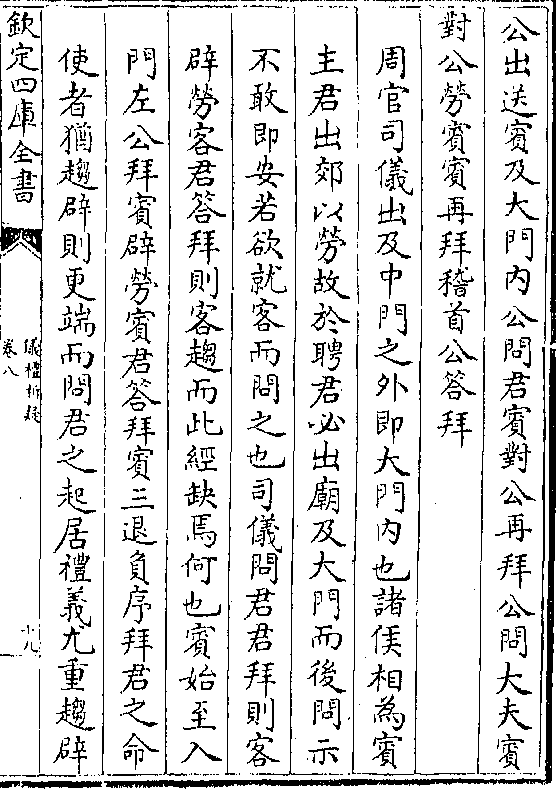 公出送賓及大門内公問君賓對公再拜公問大夫賓
對公勞賓賓再拜稽首公答拜
周官司儀出及中門之外即大門内也諸侯相為賓
主君出郊以勞故於聘君必出廟及大門而後問示
不敢即安若欲就客而問之也司儀問君君拜則客
辟勞客君答拜則客趨而此經缺焉何也賓始至入
門左公拜賓辟勞賓君答拜賓三退負序拜君之命
使者猶趨辟則更端而問君之起居禮義尤重趨辟
欽定四庫全書
儀禮析疑
卷八
十九